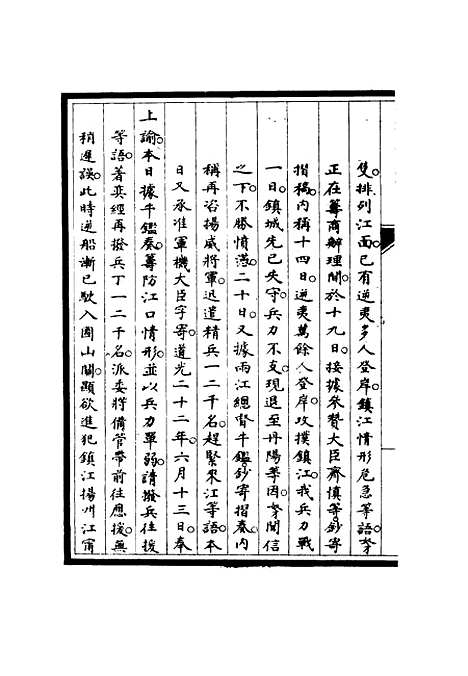 隻。排列江面。已有逆夷多人登岸。鎮江情形危急等語。
正在籌商辦理間。於十九日。接據參贊大臣齊慎等鈔寄
摺稿。內稱十四日。逆夷萬餘人登岸。攻撲鎮江。我兵力戰
一日。鎮城先已失守。兵力不支。現退至丹陽等因。聞信
之下。不勝憤懣。二十日。又據兩江總督牛鑑鈔寄摺奏。內
稱再咨揚威將軍。迅遣精兵一二千名。趕緊來江等語。本
日又承准軍機大臣字寄。道光二十二年六月十三日。奉
上諭。本日據牛鑑奏。籌防江口情形。並以兵力單弱。請撥兵往援
等語。著奕經再撥兵丁一二千名。派委將備管帶前往應援。無
稍遲誤。此時逆船漸已駛入圌山關。顯欲進犯鎮江揚州江甯